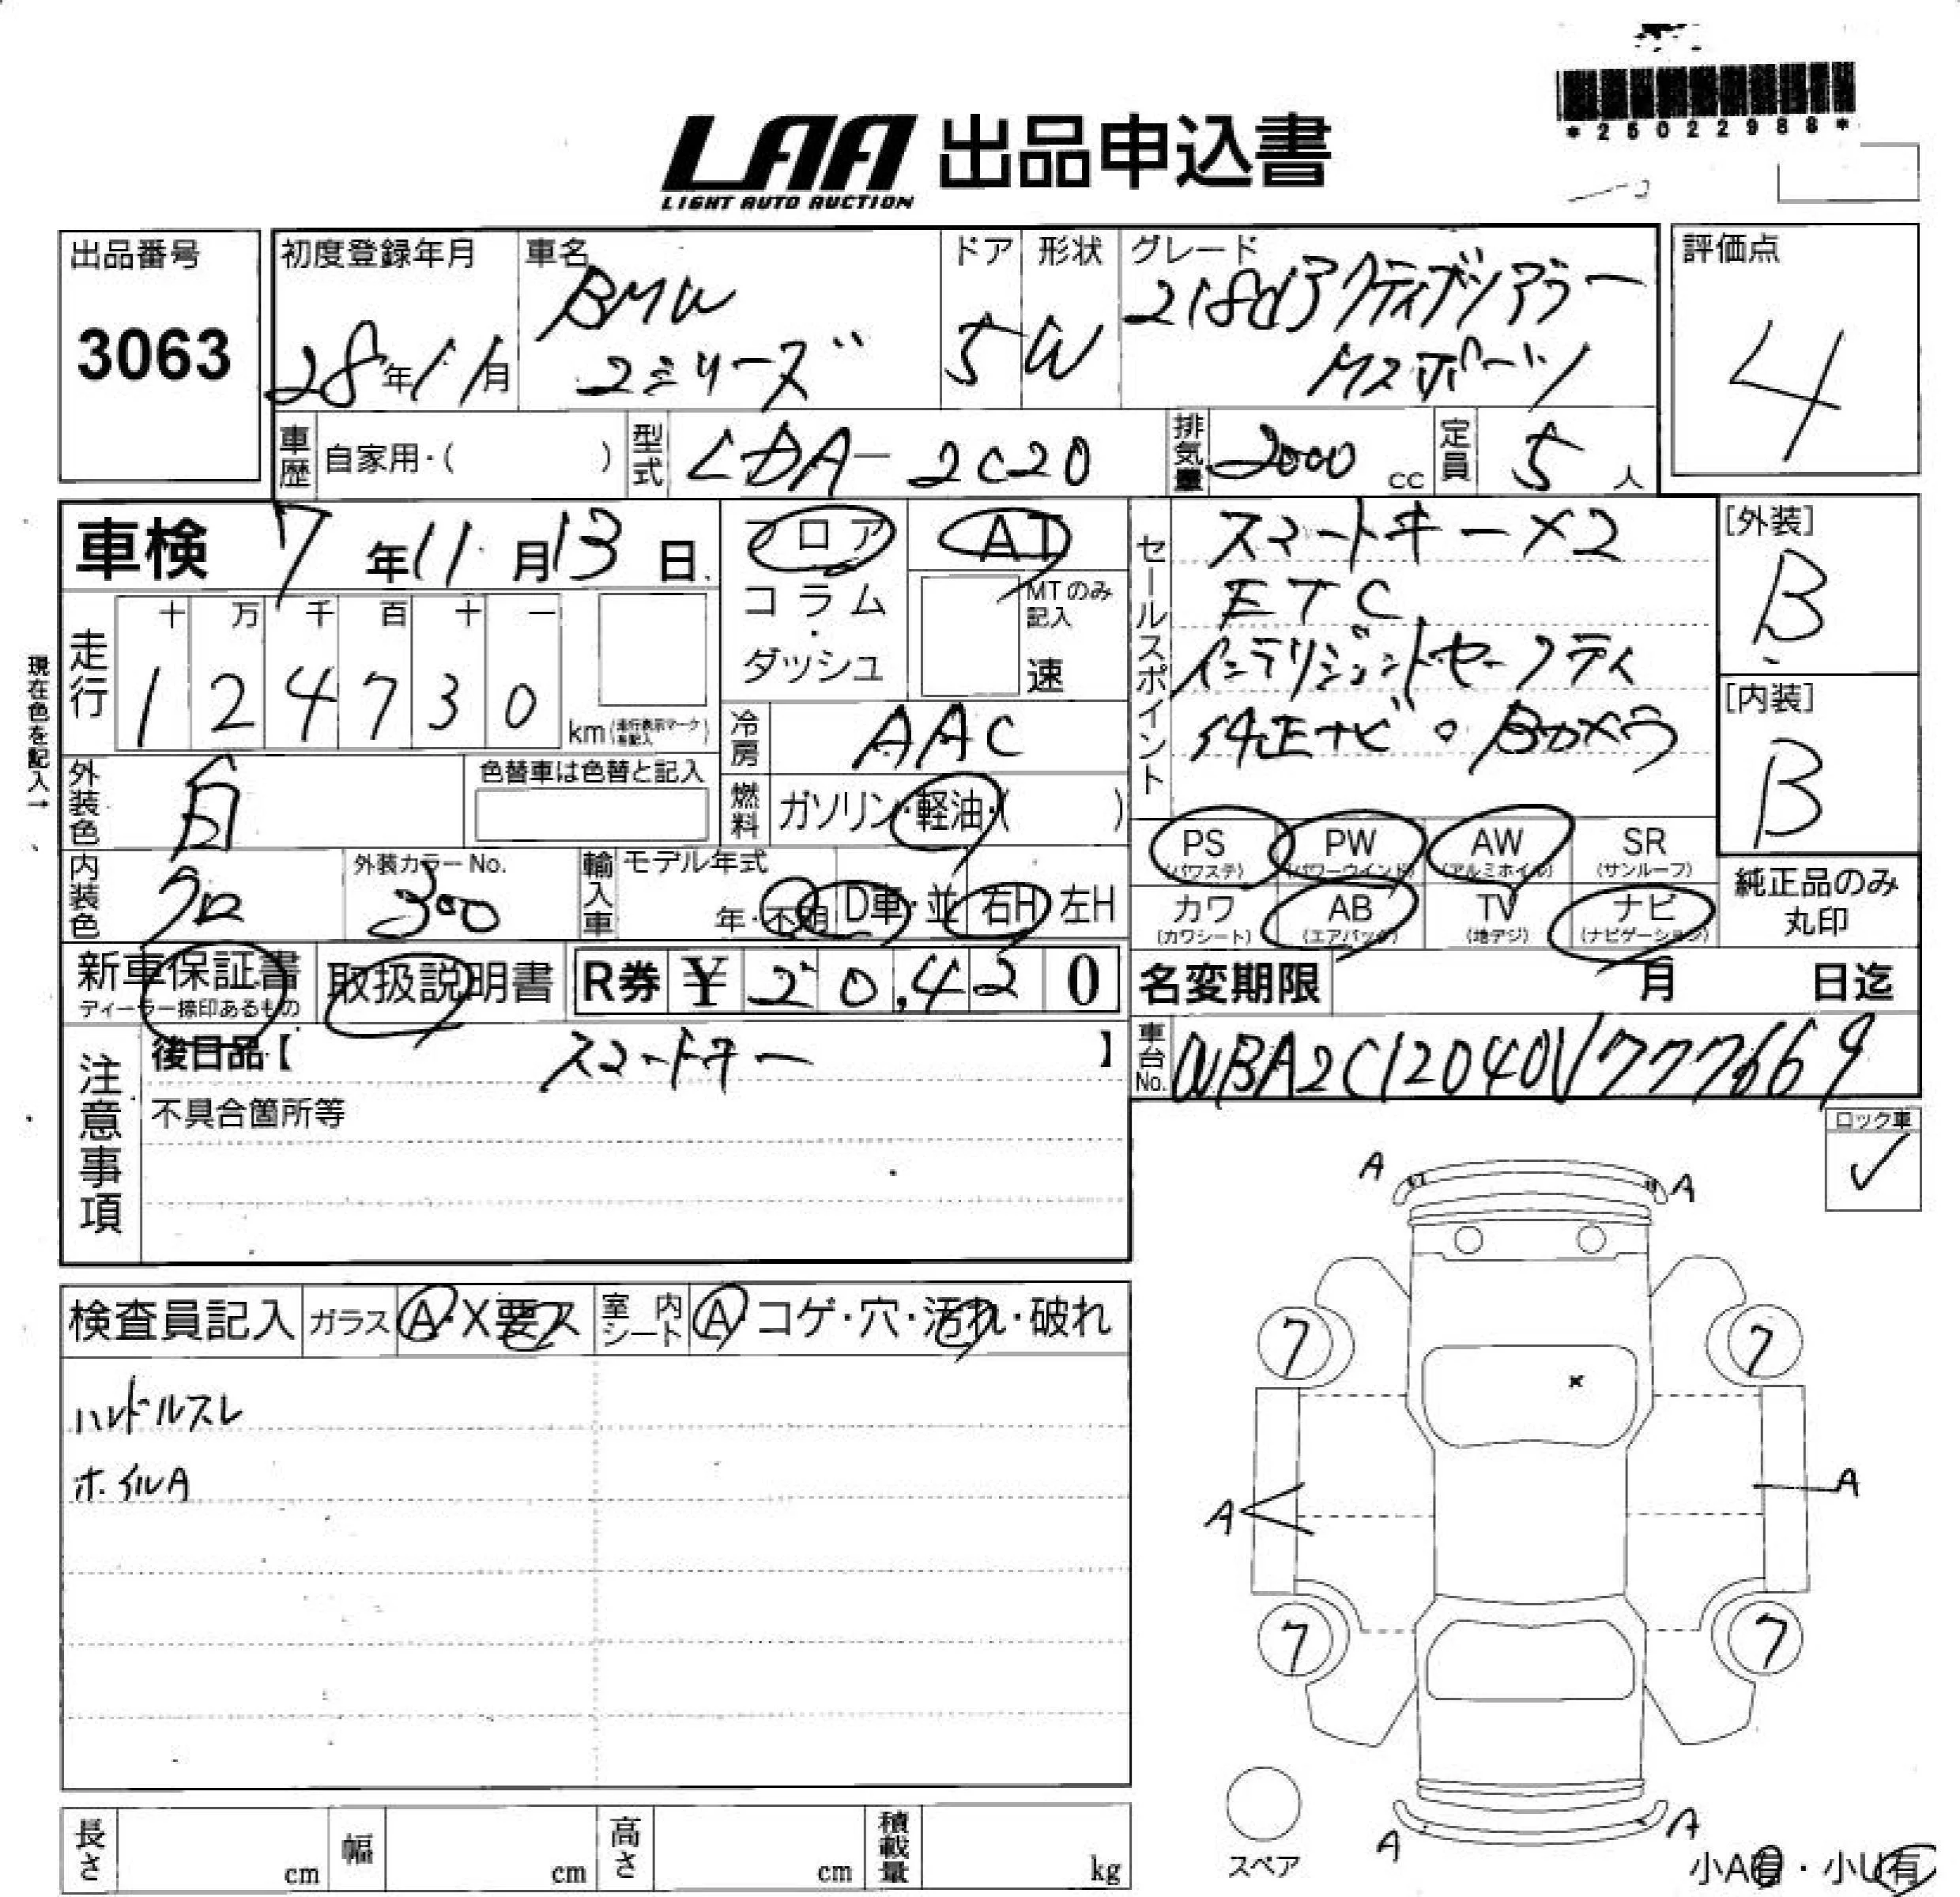 *25022988*
LAA 出品申込書
LIGHT AUTO AUCTION
出品番号
3063
初度登録年月
28年11月
車名
BMW
2シリーズ
ドア
5
形状
W
グレード
218dアクティブツアラー
Mスポーツ
評価点
4
車歴 自家用・( )
型式 LDA-2C20
排気量 2000 cc
定員 5 人
車検 7年11月13日
フロア
コラム
・
ダッシュ
AT
MTのみ記入
速
セールスポイント
スマートキー×2
ETC
インテリジェントセーフティ
純正ナビ。Bカメラ
[外装]
B
[内装]
B
現在色を記入→
走行
十 万 千 百 十 一
1 2 4 7 3 0
km(走行表示マークを記入)
冷房 AAC
外装色 白
色替車は色替と記入
燃料 ガソリン・軽油・( )
内装色 クロ
外装カラーNo.
300
輸入車 モデル年式
年・不明 D車・並 右H 左H
PS (パワステ)
PW (パワーウインド)
AW (アルミホイル)
SR (サンルーフ)
カワ (カワシート)
AB (エアバック)
TV (地デジ)
ナビ (ナビゲーション)
純正品のみ
丸印
新車保証書
ディーラー捺印あるもの
取扱説明書
R券 ¥ 20,420
名変期限 月 日迄
車台No. WBA2C12040V777669
注意事項
後日品【 スマートキー 】
不具合箇所等
ロック車
✓
検査員記入
ガラス A・X要ス
室内シート A・コゲ・穴・汚れ・破れ
ハンドルスレ
ホイルA
A A
7 7
x
A A
7 7
A A
スペア
小A有・小U有
長さ cm
幅 cm
高さ cm
積載量 kg